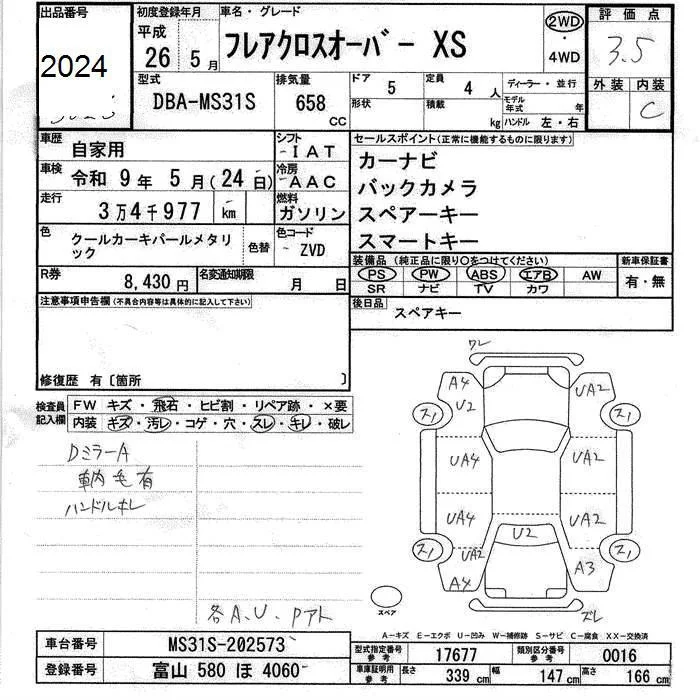 出品番号
2024
初度登録年月
平成
26 5 月
車名・グレード
フレアクロスオーバー XS
2WD
・
4WD
評価点
3.5
外装 内装
C
型式
DBA-MS31S
排気量
658
CC
ドア 5
定員 4 人
形状
積載 kg
ディーラー・並行
モデル年式 年
ハンドル 左・右
車歴
自家用
シフト
IAT
車検
令和 9 年 5 月 (24 日)
冷房
AAC
走行
3万4千977 km
燃料
ガソリン
色
クールカーキパールメタリック
色替
色コード
ZVD
R券
8,430 円
名変通知期限
月 日
セールスポイント(正常に機能するものに限ります)
カーナビ
バックカメラ
スペアーキー
スマートキー
装備品(純正品に限り○をつけてください)
新車保証書
PS PW ABS エアB AW
SR ナビ TV カワ
有・無
後日品
スペアキー
注意事項申告欄(不具合内容等は具体的に記入して下さい)
修復歴 有〔箇所 〕
検査員記入欄
FW キズ・飛石・ヒビ割・リペア跡・×要
内装 キズ・汚レ・コゲ・穴・スレ・キレ・破レ
DミラーA
車内毛有
各A、U、Pアト
ワレ
A4
U2
UA2
ス1
ス1
UA4
UA2
UA4
UA2
U2
ス1
ス1
UA2
A4
A3
ズレ
スペア
A-キズ E-エクボ U-凹み W-補修跡 S-サビ C-腐食 XX-交換済
車台番号
MS31S-202573
登録番号
富山 580 ほ 4060
型式指定番号
参考
17677
類別区分番号
参考
0016
車庫証明用
参考
長さ 339 cm
幅 147 cm
高さ 166 cm